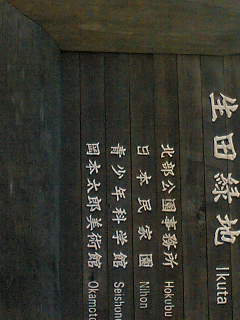 生田緑地 Ikuta
北部公園事務所 Hokubu
日本民家園 Nihon
青少年科学館 Seishone
岡本太郎美術館 Okamoto